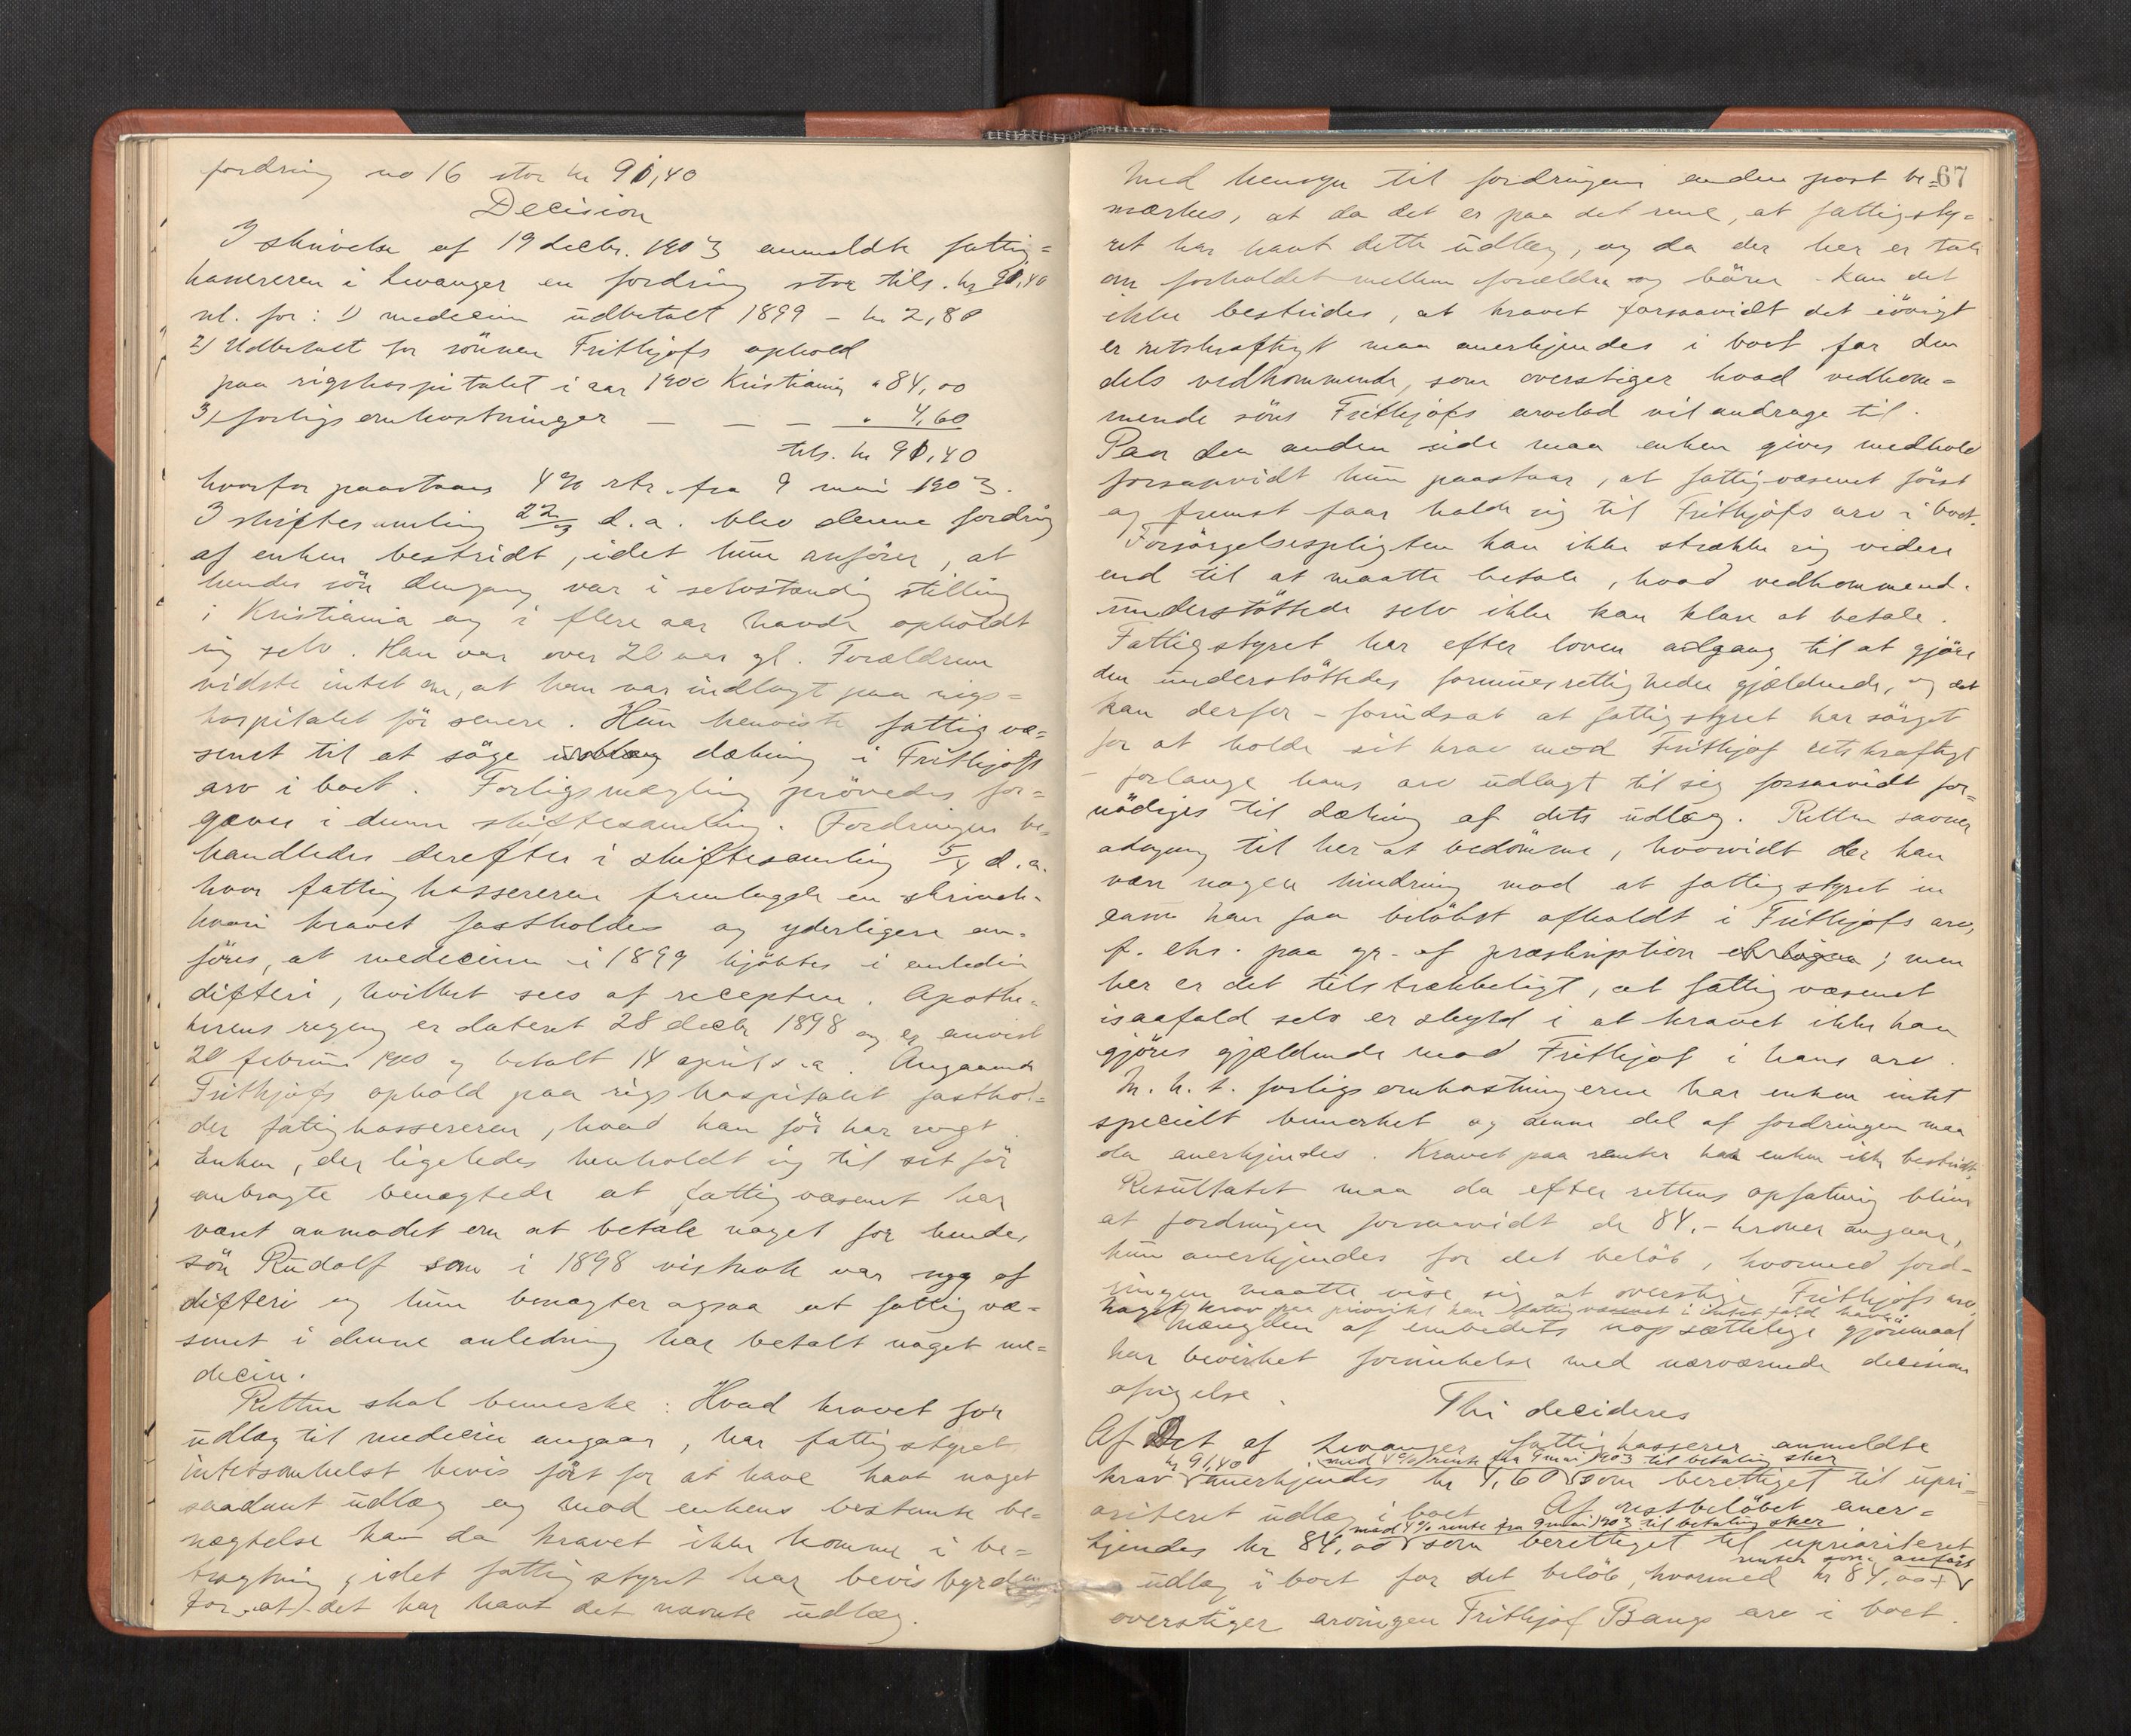 fordring no 16 stor kr 91,40
Decision
I skrivelse af 19 decbr. 1903 anmeldte fattig=
kassereren i Levanger en fordring stor tils. kr 91,40
nl. for: 1) medecin udbetalt 1899 - kr 2,80
2) Udbetalt for sönnen Frithjofs ophold
paa rigshospitalet i aar 1900 Kristiania " 84,00
3) forligsomkostninger — — — " 4,60
tils. kr 91,40
hvorfor paastaaes 4 % rtr. fra 9 mai 1903.
I skiftesamling 22/3 d.a. blev denne fordring
af enken bestridt, idet hun anförer, at
hendes sön dengang var i selvstændig stilling
i Kristiania og i flere aar havde opholdt
sig selv. Han var over 20 aar gl. Forældrene
vidste intet om, at han var indlagt paa rigs=
hospitalet för senere. Hun henviste fattigvæ=
senet til at söge udlæg dækning i Frithjofs
arv i boet. Forligsmægling prövedes for=
gjæves i denne skiftesamling. Fordringen be=
handledes derefter i skiftesamling 5/4 d.a.
hvor fattigkassereren fremlagde en skrivelse
hvori kravet fastholdes og yderligere an=
föres, at medecinen i 1899 kjöbtes i anledn
difteri, hvilket sees af recepten. Apothe=
kerens regning er dateret 28 decbr 1898 og er anvist
20 februar 1900 og betalt 14 april s.a. Angaaende
Frithjofs ophold paa rigshospitalet fasthol=
der fattigkassereren, hvad han för har sagt.
Enken, der ligeledes henholdt sig til sit för
anbragte benegtede at fattigvæsenet har
været anmodet om at betale noget for hendes
sön Rudolf som i 1898 vistnok var syg af
difteri og hun benegter ogsaa at fattigvæ=
senet i denne anledning har betalt noget me=
decin.
Retten skal bemerke: Hvad kravet for
udlæg til medecin angaar, har fattigstyret
intetsomhelst bevis fört for at have havt noget
saadant udlæg og mod enkens bestemte be=
nægtelse kan da kravet ikke komme i be=
tragtning, idet fattigstyret har bevisbyrden
for, at det har havt det nævnte udlæg.
67
Med hensyn til fordringens anden post be=
mærkes, at da det er paa det rene, at fattigsty=
ret har havt dette udlæg, og da der her er tale
om forholdet mellem forældre og börn - kan det
ikke bestrides, at kravet forsaavidt det iövrigt
er retskraftigt maa anerkjendes i boet for den
dels vedkommende, som overstiger hvad vedkom=
mende söns Frithjofs arvelod vil andrage til.
Paa den anden side maa enken gives medhold
forsaavidt hun paastaar, at fattigvæsenet först
og fremst faar holde sig til Frithjofs arv i boet.
Forsörgelsespligten kan ikke strække sig videre
end til at maatte betale, hvad vedkommende
understöttede selv ikke kan klare at betale.
Fattigstyret har efter loven adgang til at gjöre
den understöttedes formuesrettigheder gjældende, og det
kan derfor - forudsat at fattigstyret har sörget
for at holde sit krav mod Frithjof retskraftigt
- forlange hans arv udlagt til sig forsaavidt for=
nödiges til dækning af dets udlæg. Retten savner
adgang til her at bedömme, hvorvidt der kan
være nogen hindring mod at fattigstyret in
casu kan faa belöbet afholdt i Frithjofs arv,
f. eks. paa gr. af præskription; men
her er det tilstrækkeligt, at fattigvæsenet
isaafald selv er skyld i at kravet ikke kan
gjöres gjældende mod Frithjof i hans arv.
M. h. t. forligsomkostningerne har enken intet
specielt bemerket og denne del af fordringen maa
da anerkjendes. Kravet paa renter har enken ikke bestridt.
Resultatet maa da efter rettens opfatning blive
at fordringen forsaavidt de 84,- kroner angaar,
kun anerkjendes for det belöb, hvormed ford=
ringen maatte vise sig at overstige Frithjofs arv.
Noget krav paa prioritet kan fattigvæsenet i intet fald have.
Mængden af embedets uopsættelige gjöremaal
har bevirket forsinkelse med nærværende decisions
afsigelse.
Thi decideres
Af Det af Levanger fattigkasserer anmeldte
kr 91,40 med 4 % rente fra 9 mai 1903 til betaling sker
krav anerkjendes kr 4,60 som berettiget til upri=
oriteret udlæg i boet. Af restbelöbet aner=
med 4 % rente fra 9 mai 1903 til betaling sker
kjendes kr 84,00 som berettiget til uprioriteret
renter som anfört
udlæg i boet for det belöb, hvormed kr 84,00 +
overstiger arvingen Frithjof Bangs arv i boet.